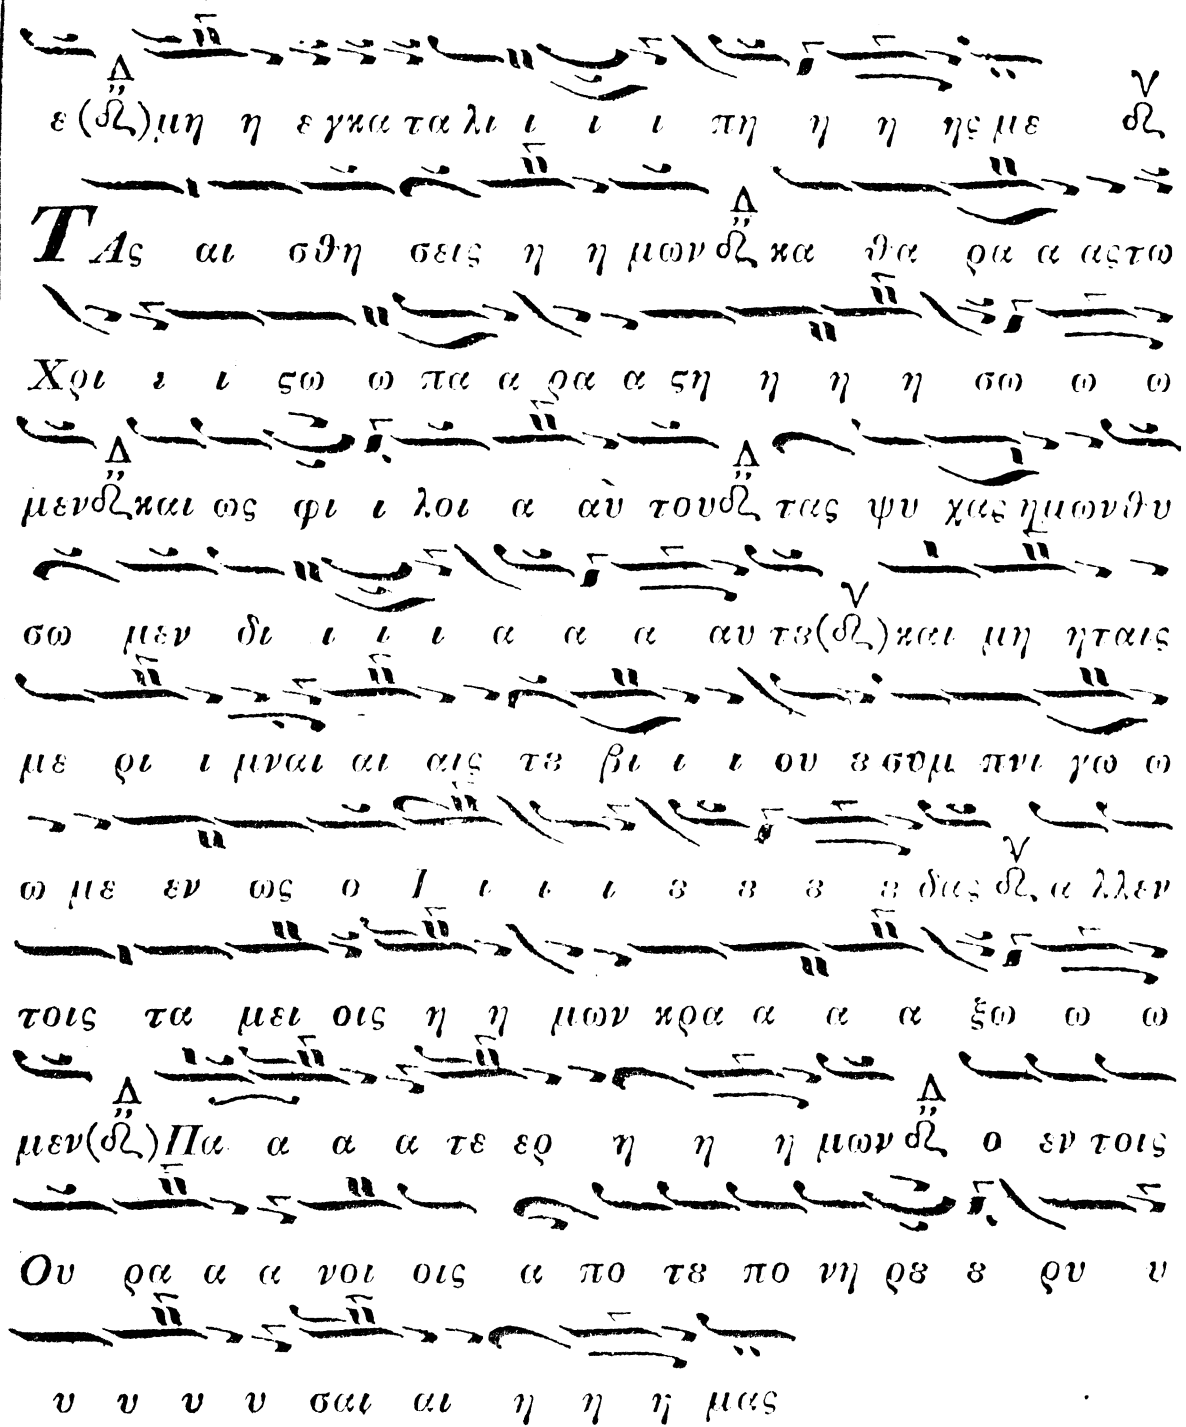 ε (δ) μη η ε γκα τα λι ι ι ι πη η η ης με δ
ΤΑς αι σθη σεις η η μων δ κα θα ρα α ας τω
Χρι ι ι ϛω ω πα α ρα α ϛη η η η σω ω ω
μεν δ και ως φι ι λοι α αὺ του δ τας ψυ χας ημων θυ
σω μεν δι ι ι ι α α α αυ τȣ (δ) και μη η ταις
με ρι ι μναι αι αις τȣ βι ι ι ου ȣ συμ πνι γω ω
ω με εν ως ο Ι ι ι ι ȣ ȣ ȣ ȣ δας δ α λλ εν
τοις τα μει οις η η μων κρα α α α ξω ω ω
μεν (δ) Πα α α α τε ερ η η η μων δ ο εν τοις
Ου ρα α α νοι οις α πο τȣ πο νη ρȣ ȣ ρυ υ
υ υ υ υ σαι αι η η η μας